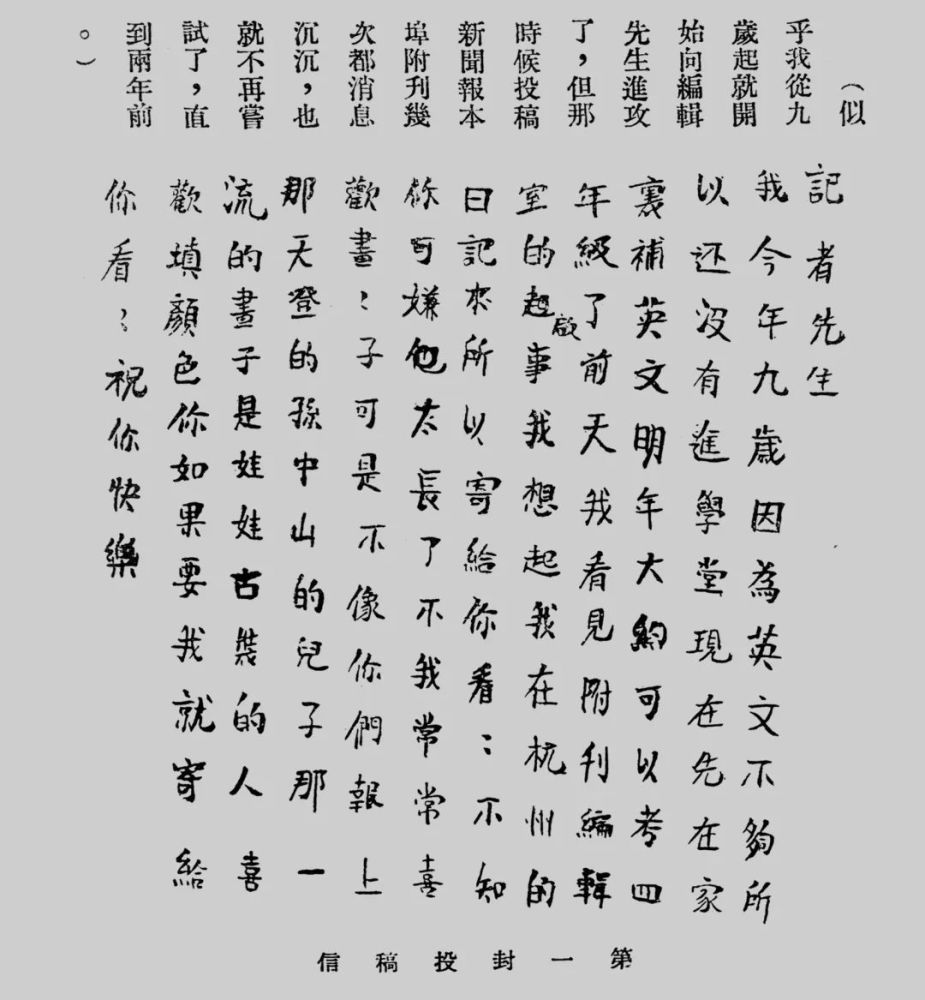 （似
乎我從九
歲起就開
始向編輯
先生進攻
了，但那
時候投稿
新聞報本
埠附刊幾
次都消息
沉沉，也
就不再嘗
試了，直
到兩年前
。）
記者先生
我今年九歲因為英文不夠所
以还沒有進學堂現在先在家
裏補英文明年大約可以考四
年級了前天我看見附刊編輯
室的起啟事我想起我在杭州的
日記本所以寄給你看〻不知
你可嫌他太長了不我常常喜
歡畫〻子可是不像你們報上
那天登的孫中山的兒子那一
流的畫子是娃娃古裝的人喜
歡填顏色你如果要我就寄給
你看〻祝你快樂
第一封投稿信